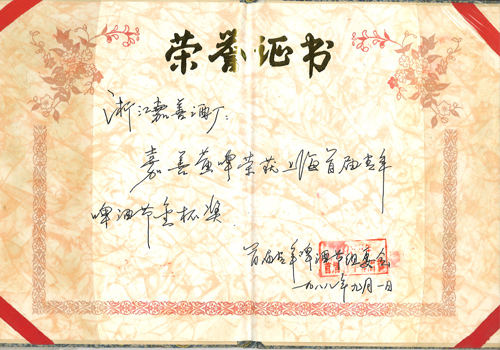 荣誉证书
浙江嘉善酒厂：
嘉善黄啤荣获上海首届青年
啤酒节金杯奖
首届青年啤酒节组委会
一九八八年九月一日